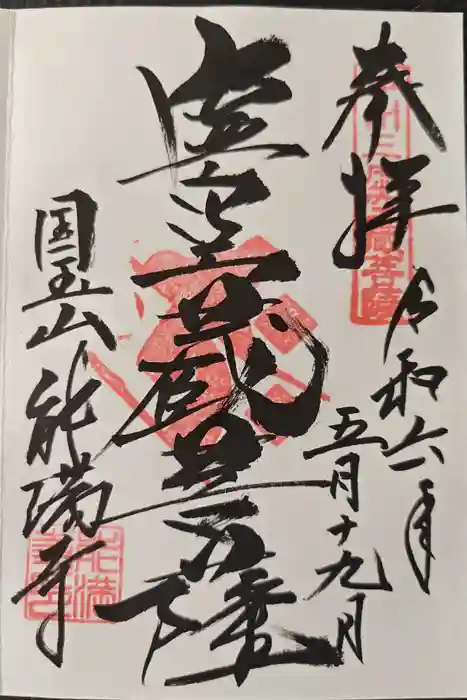 奉拝
令和六年
五月十九日
虚空蔵菩薩
国玉山 能満寺